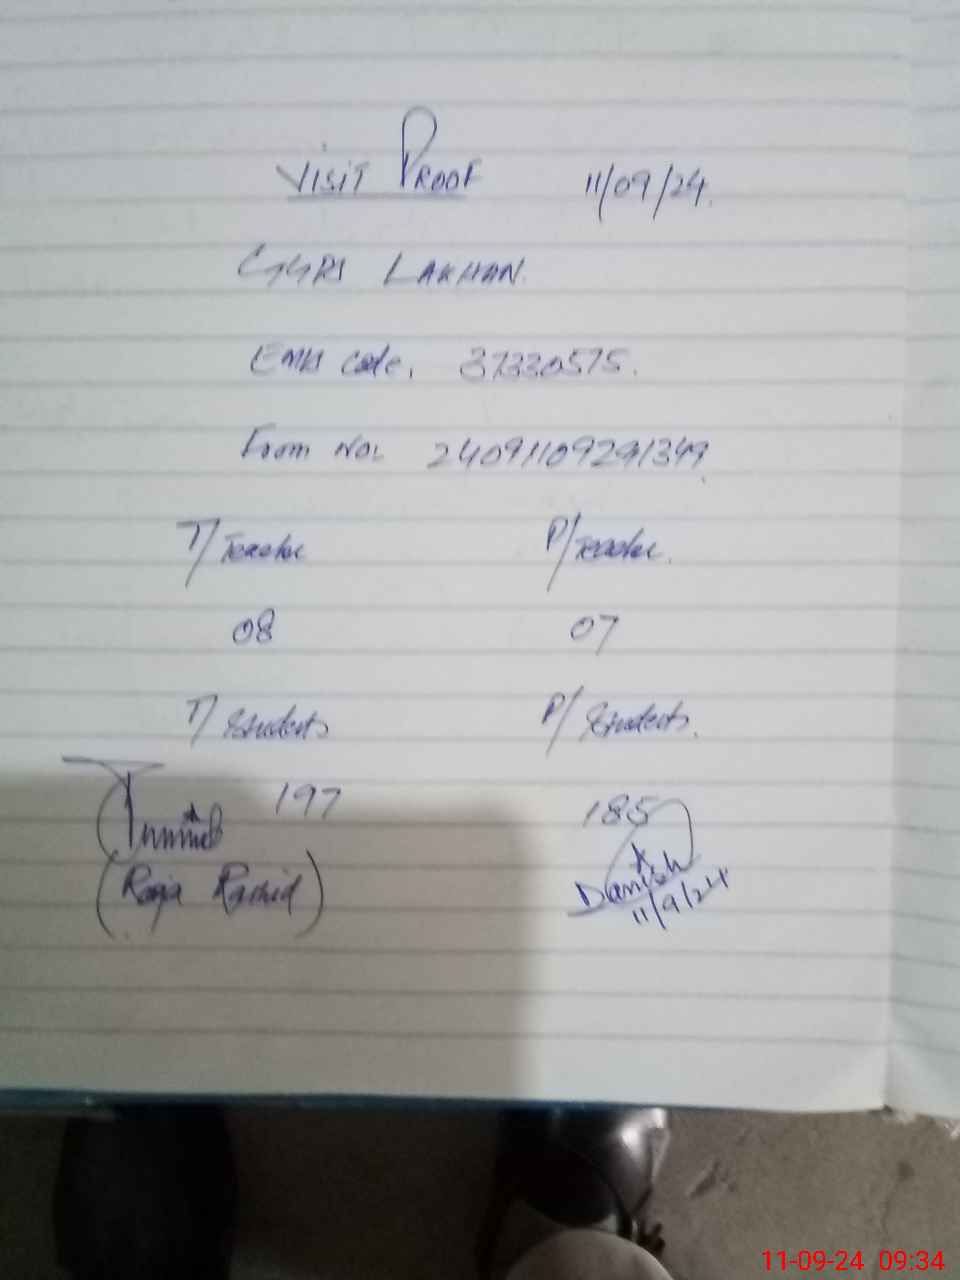 VISIT PROOF 11/09/24.
LAKHAN.
Code. 37330575.
Form No: 24091109291349
T/Teacher P/Teacher.
08 07
T/Students P/Students.
197 185
(Raja Rashid) Danish
11/9/24
11-09-24 09:34